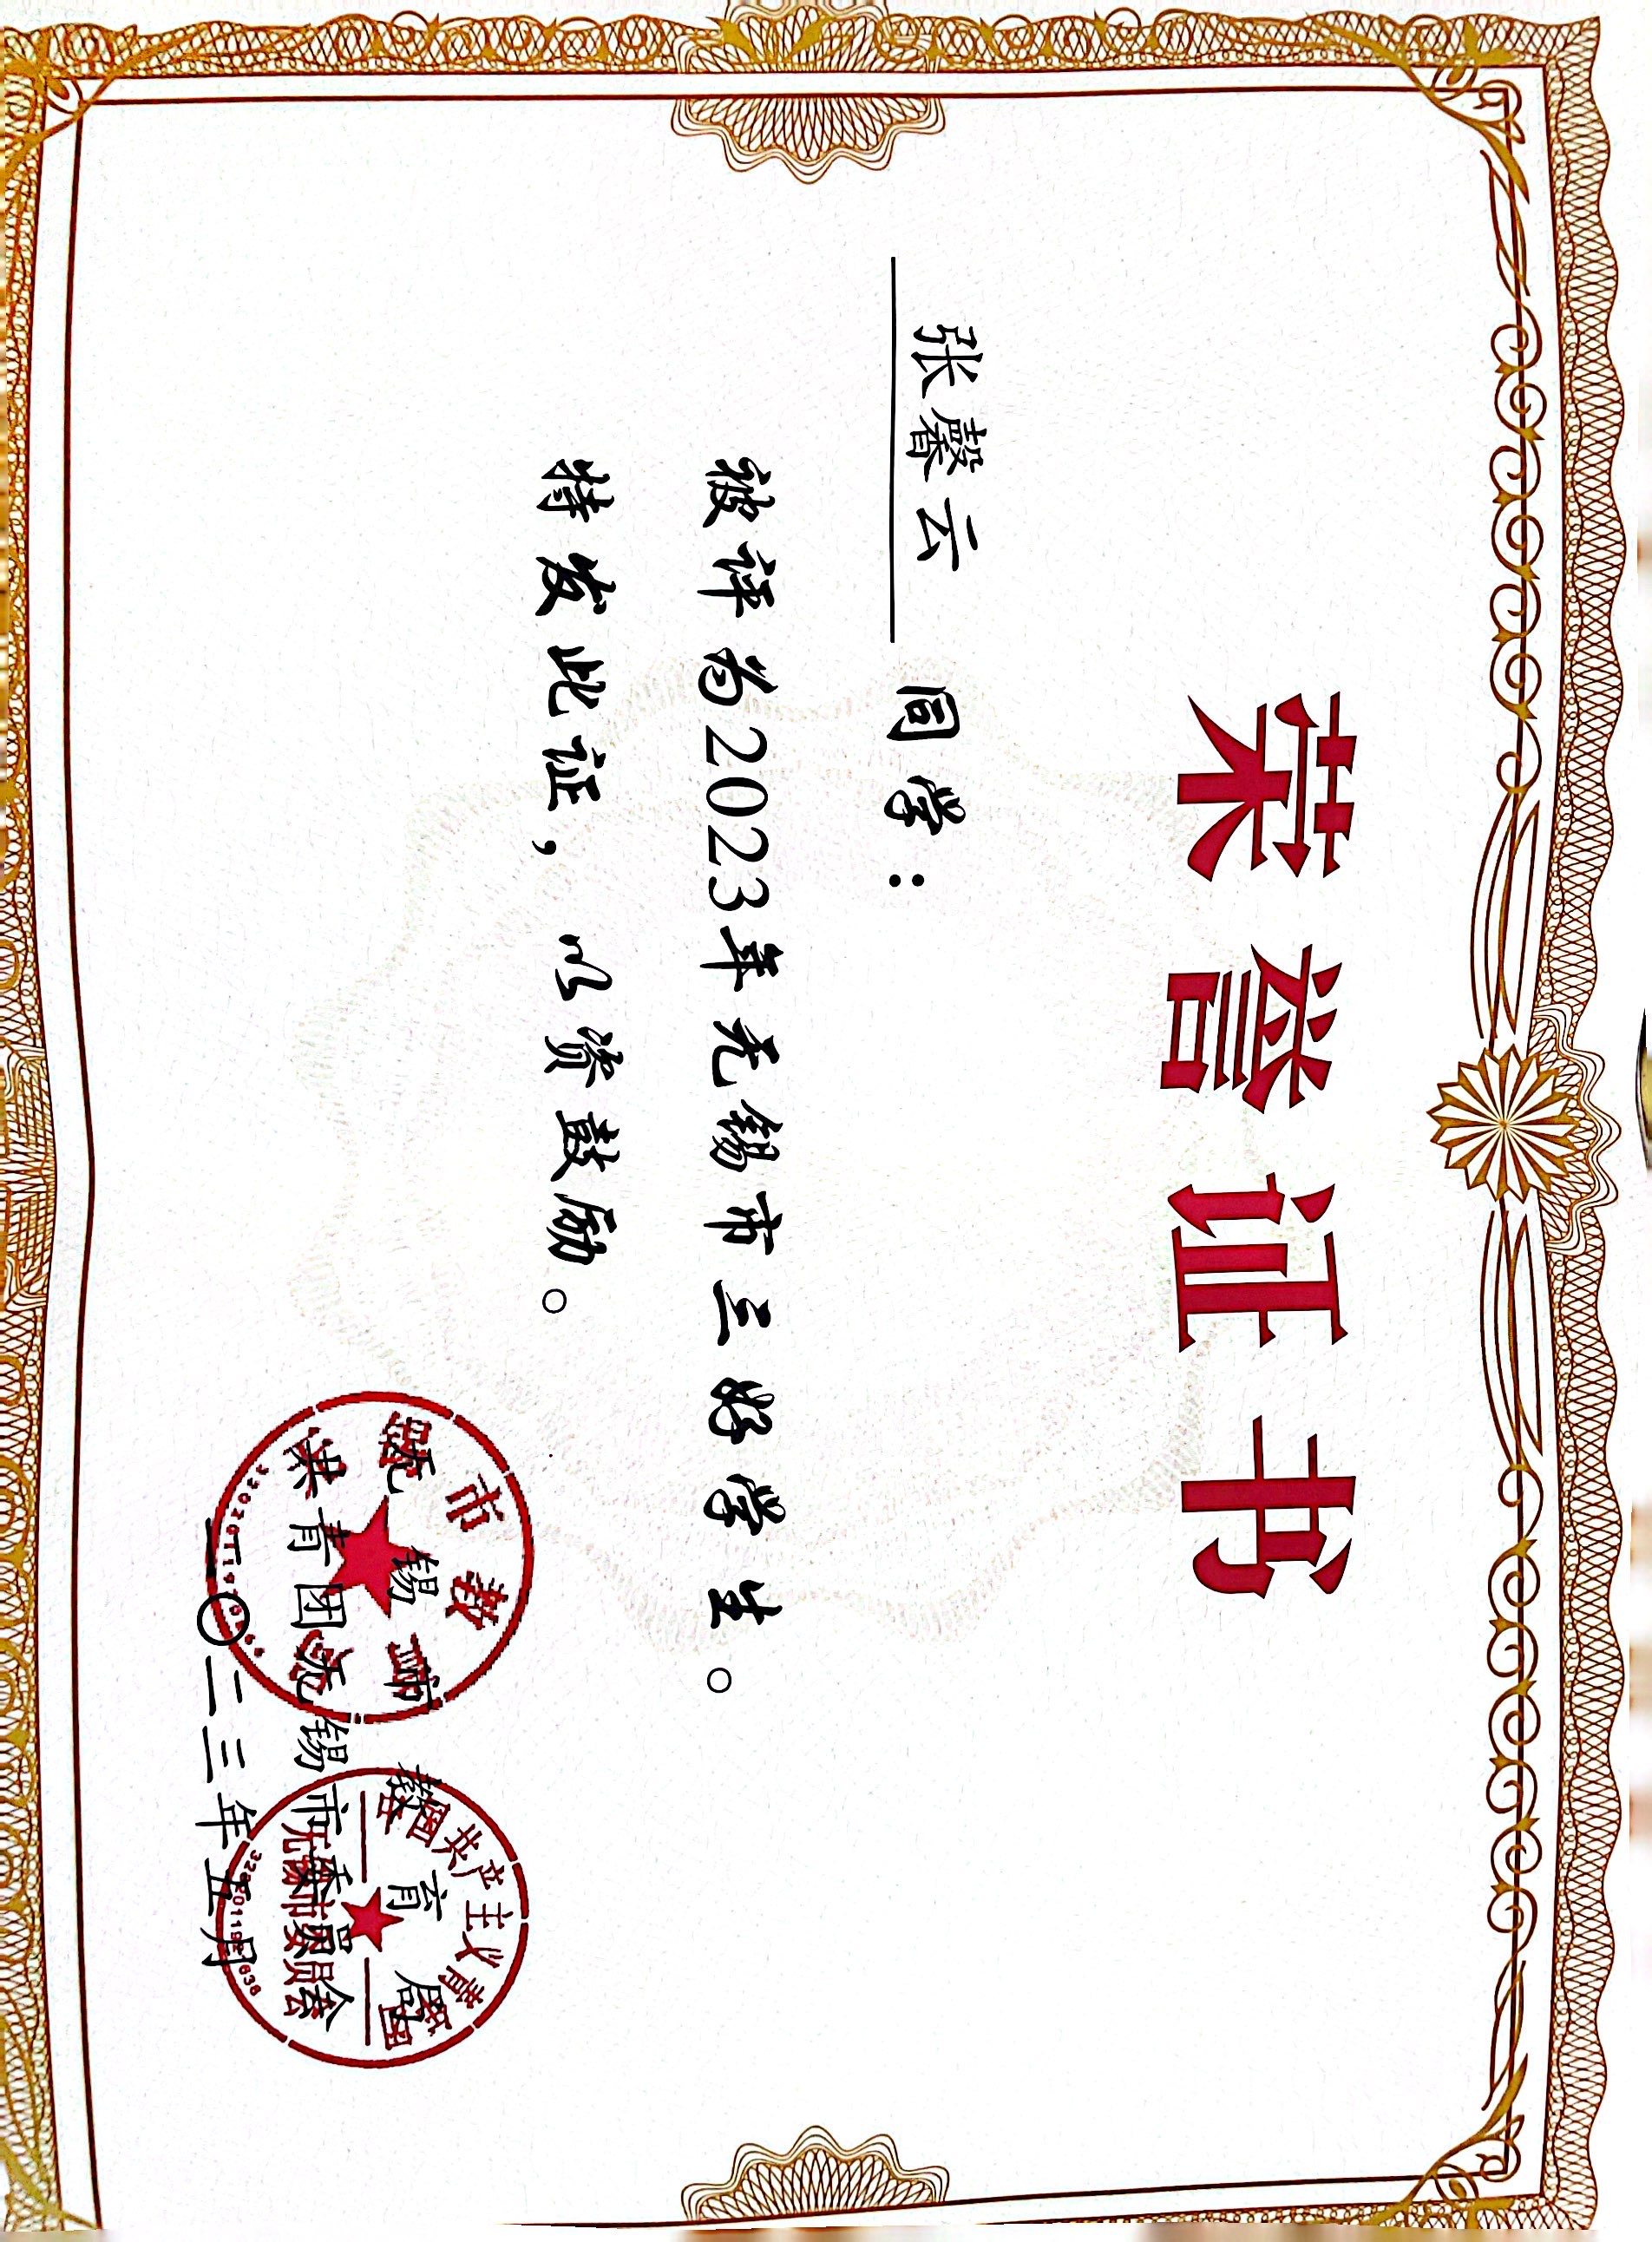 荣誉证书
张馨云 同学：
被评为2023年无锡市三好学生。
特发此证，以资鼓励。
无锡市教育局
共青团无锡市委员会
二〇二三年五月